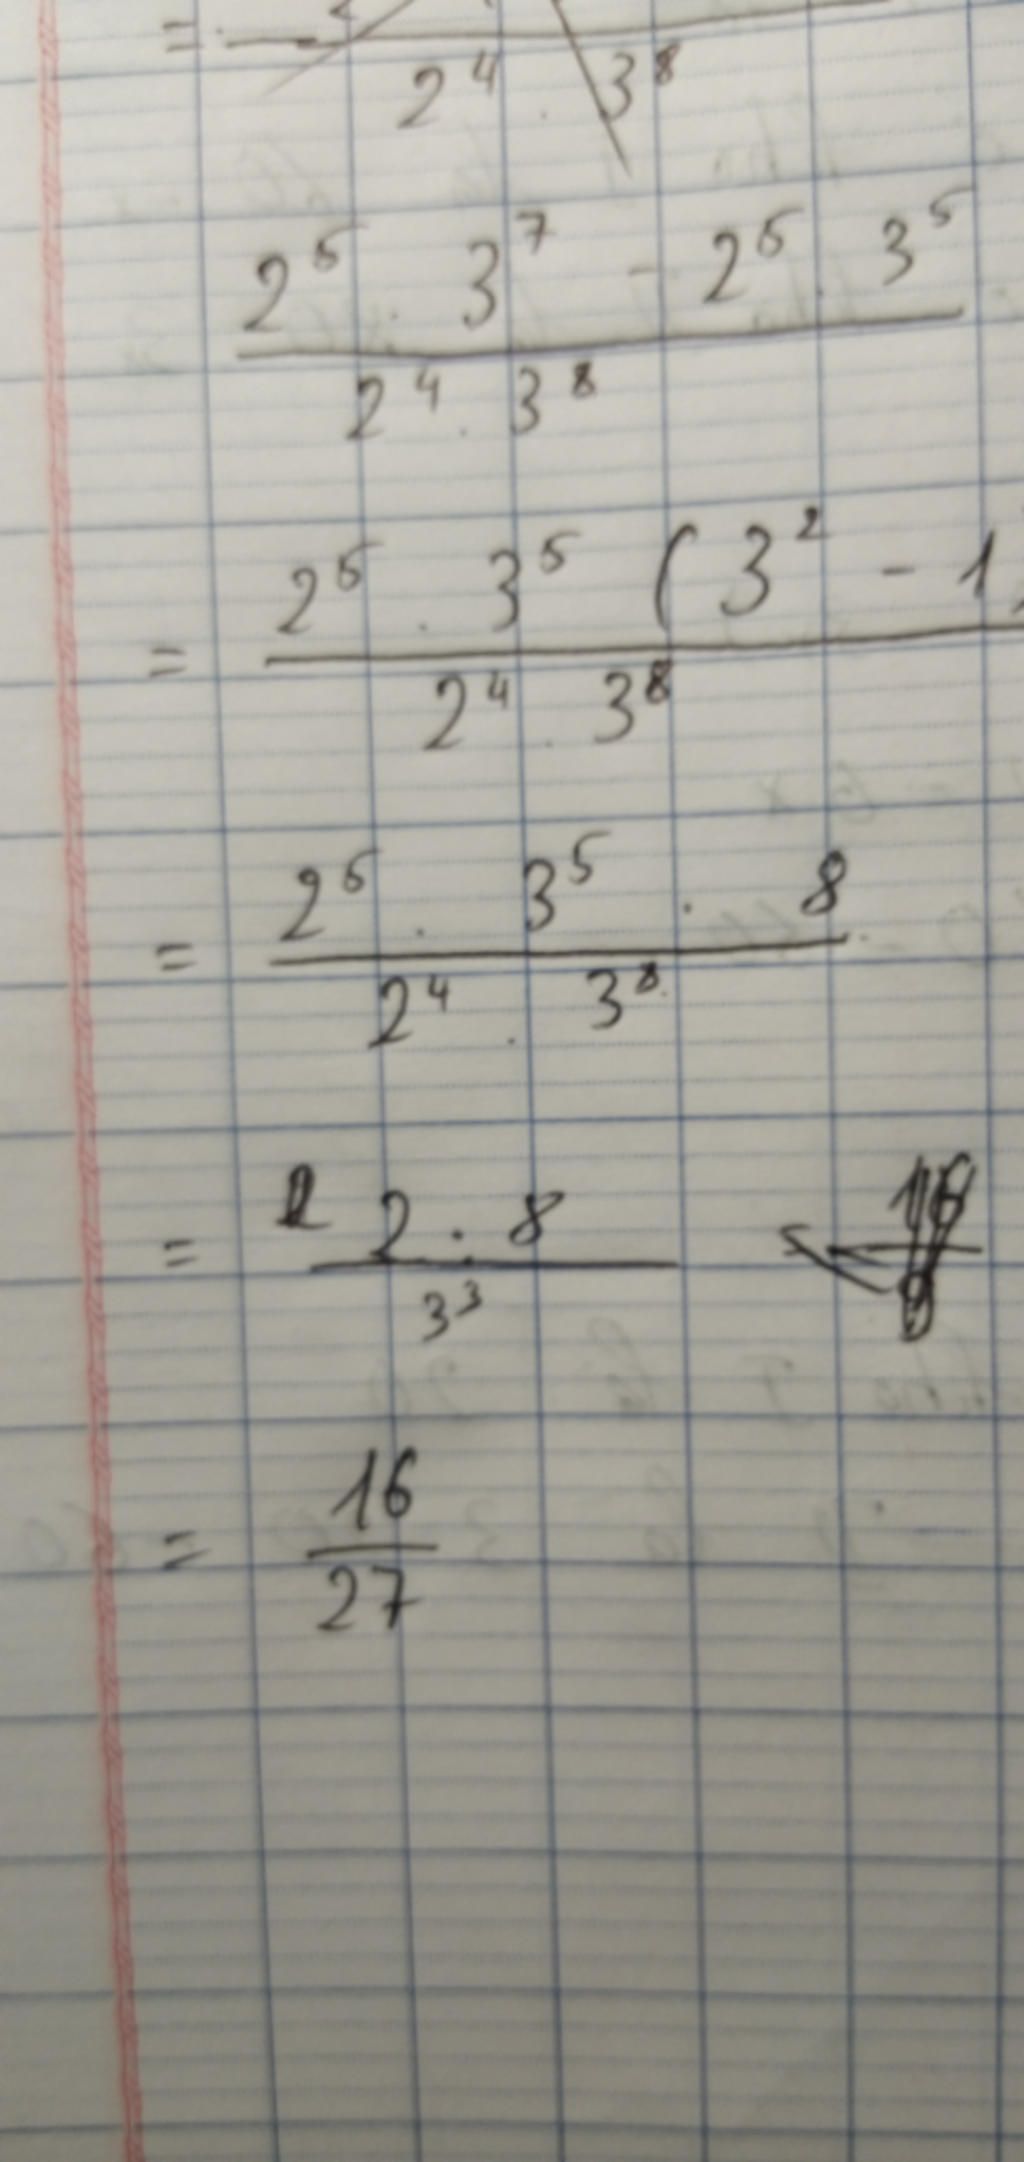 = 2⁴ . 3⁸
2⁵ . 3⁷ - 2⁵ . 3⁵
2⁴ . 3⁸
= 2⁵ . 3⁵ ( 3² - 1
2⁴ . 3⁸
= 2⁵ . 3⁵ . 8
2⁴ . 3⁸
= 2 . 8
3³
= 16
27